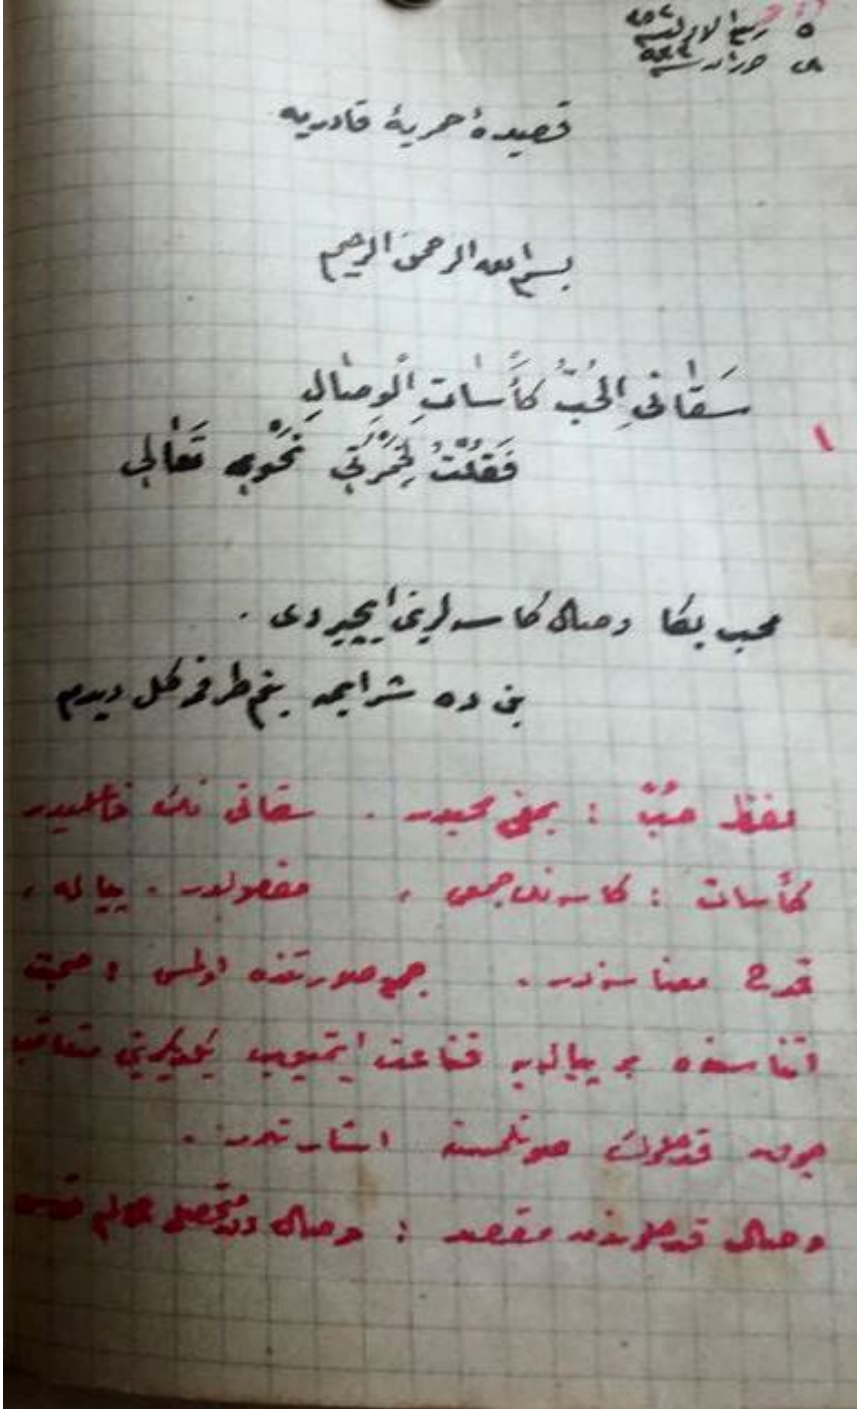 ٥ ربيع الاول
قصيدهٔ خمريهٔ قادريه
بسم الله الرحمن الرحيم
سَقَانِي الْحُبُّ كَأْسَاتِ الْوِصَالِ
١
فَقُلْتُ لِخَمْرَتِي نَحْوِي تَعَالِي
محب بكا وصال كاسه لرينى ايچيردى .
بن ده شرابمه بنم طرفمه كل ديدم
لفظ حُبّ : بمعنى محبدر . سقانى نك فاعليدر
كأسات : كاسه نك جمعى ، مفعولدر . پياله ،
قدح معناسنه در . جمع صورتنده اولمسى ; صحبت
اثناسنده بر پياله يه قناعت ايتميوب يكديكرينى متعاقب
چوق قدحلرك صونلمسنه اشارتدر .
وصال قدحلرندن مقصد : وصال